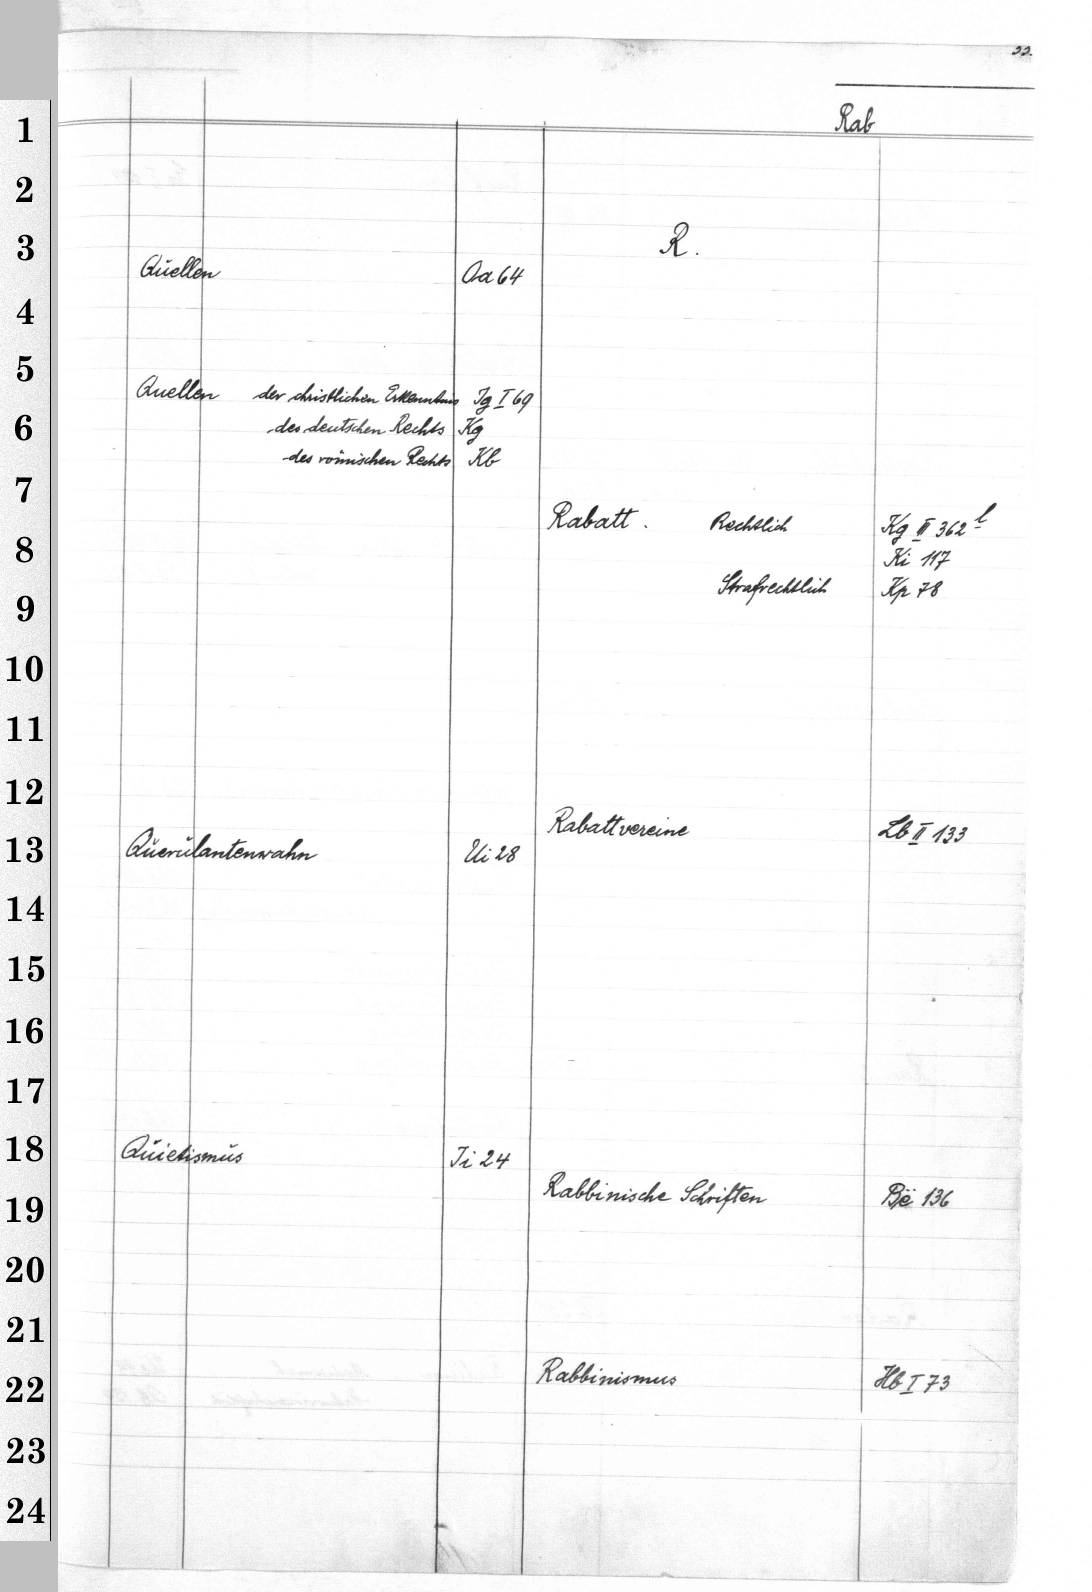 22.
Rab
1
2
3
4
5
6
7
8
9
10
11
12
13
14
15
16
17
18
19
20
21
22
23
24
Quellen Aa 64
Quellen der christlichen Erkenntnis Ig I 69
des deutschen Rechts Kg
des römischen Rechts Kb
Querulantenwahn Ui 28
Quietismus Ii 24
R.
Rabatt. Rechtlich Kg III 362 l
Ki 117
Strafrechtlich Kp 78
Rabattvereine Lb II 133
Rabbinische Schriften Be 136
Rabbinismus Hb I 73